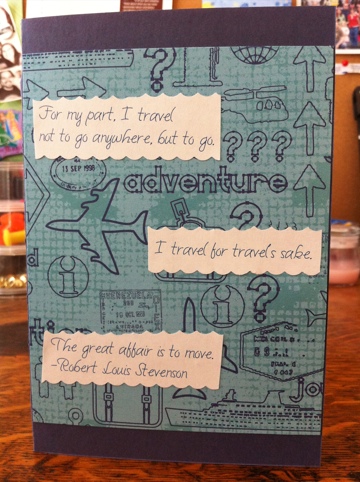 For my part, I travel
not to go anywhere, but to go.
13 SEP 1996
adventure
I travel for travel's sake.
VENEZUELA
The great affair is to move.
-Robert Louis Stevenson